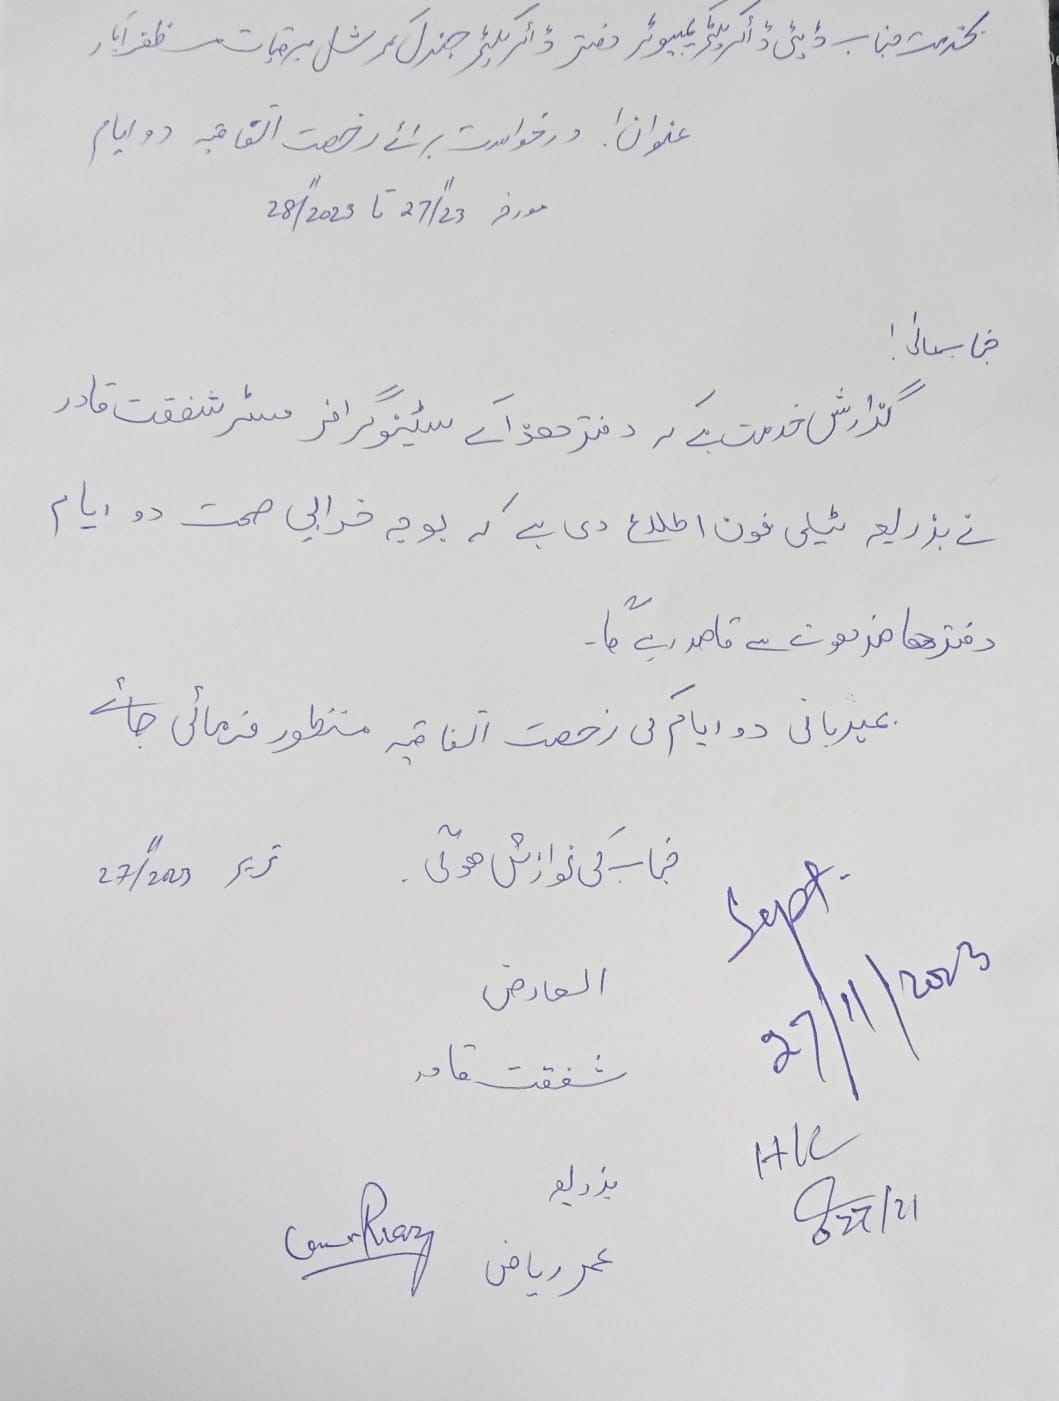 بخدمت جناب ڈپٹی ڈائریکٹر کمپیوٹر دفتر ڈائریکٹر جنرل کمرشل برقیات مظفرآباد
عنوان! درخواست برائے رخصت اتفاقیہ دو ایام
مورخہ 27/11/23 تا 28/11/2023
جناب عالی!
گذارش خدمت ہے کہ دفتر ھذا کے سٹینوگرافر مسٹر شفقت قادر
نے بذریعہ ٹیلی فون اطلاع دی ہے کہ بوجہ خرابی صحت دو ایام
دفتر حاضر ہونے سے قاصر رہے گا۔
مہربانی دو ایام کی رخصت اتفاقیہ منظور فرمائی جائے
جناب کی نوازش ہوگی۔
تحریر 27/11/2023
العارض
شفقت قادر
بذریعہ
عمر ریاض
Umar Riaz
Supt.
27/11/2023